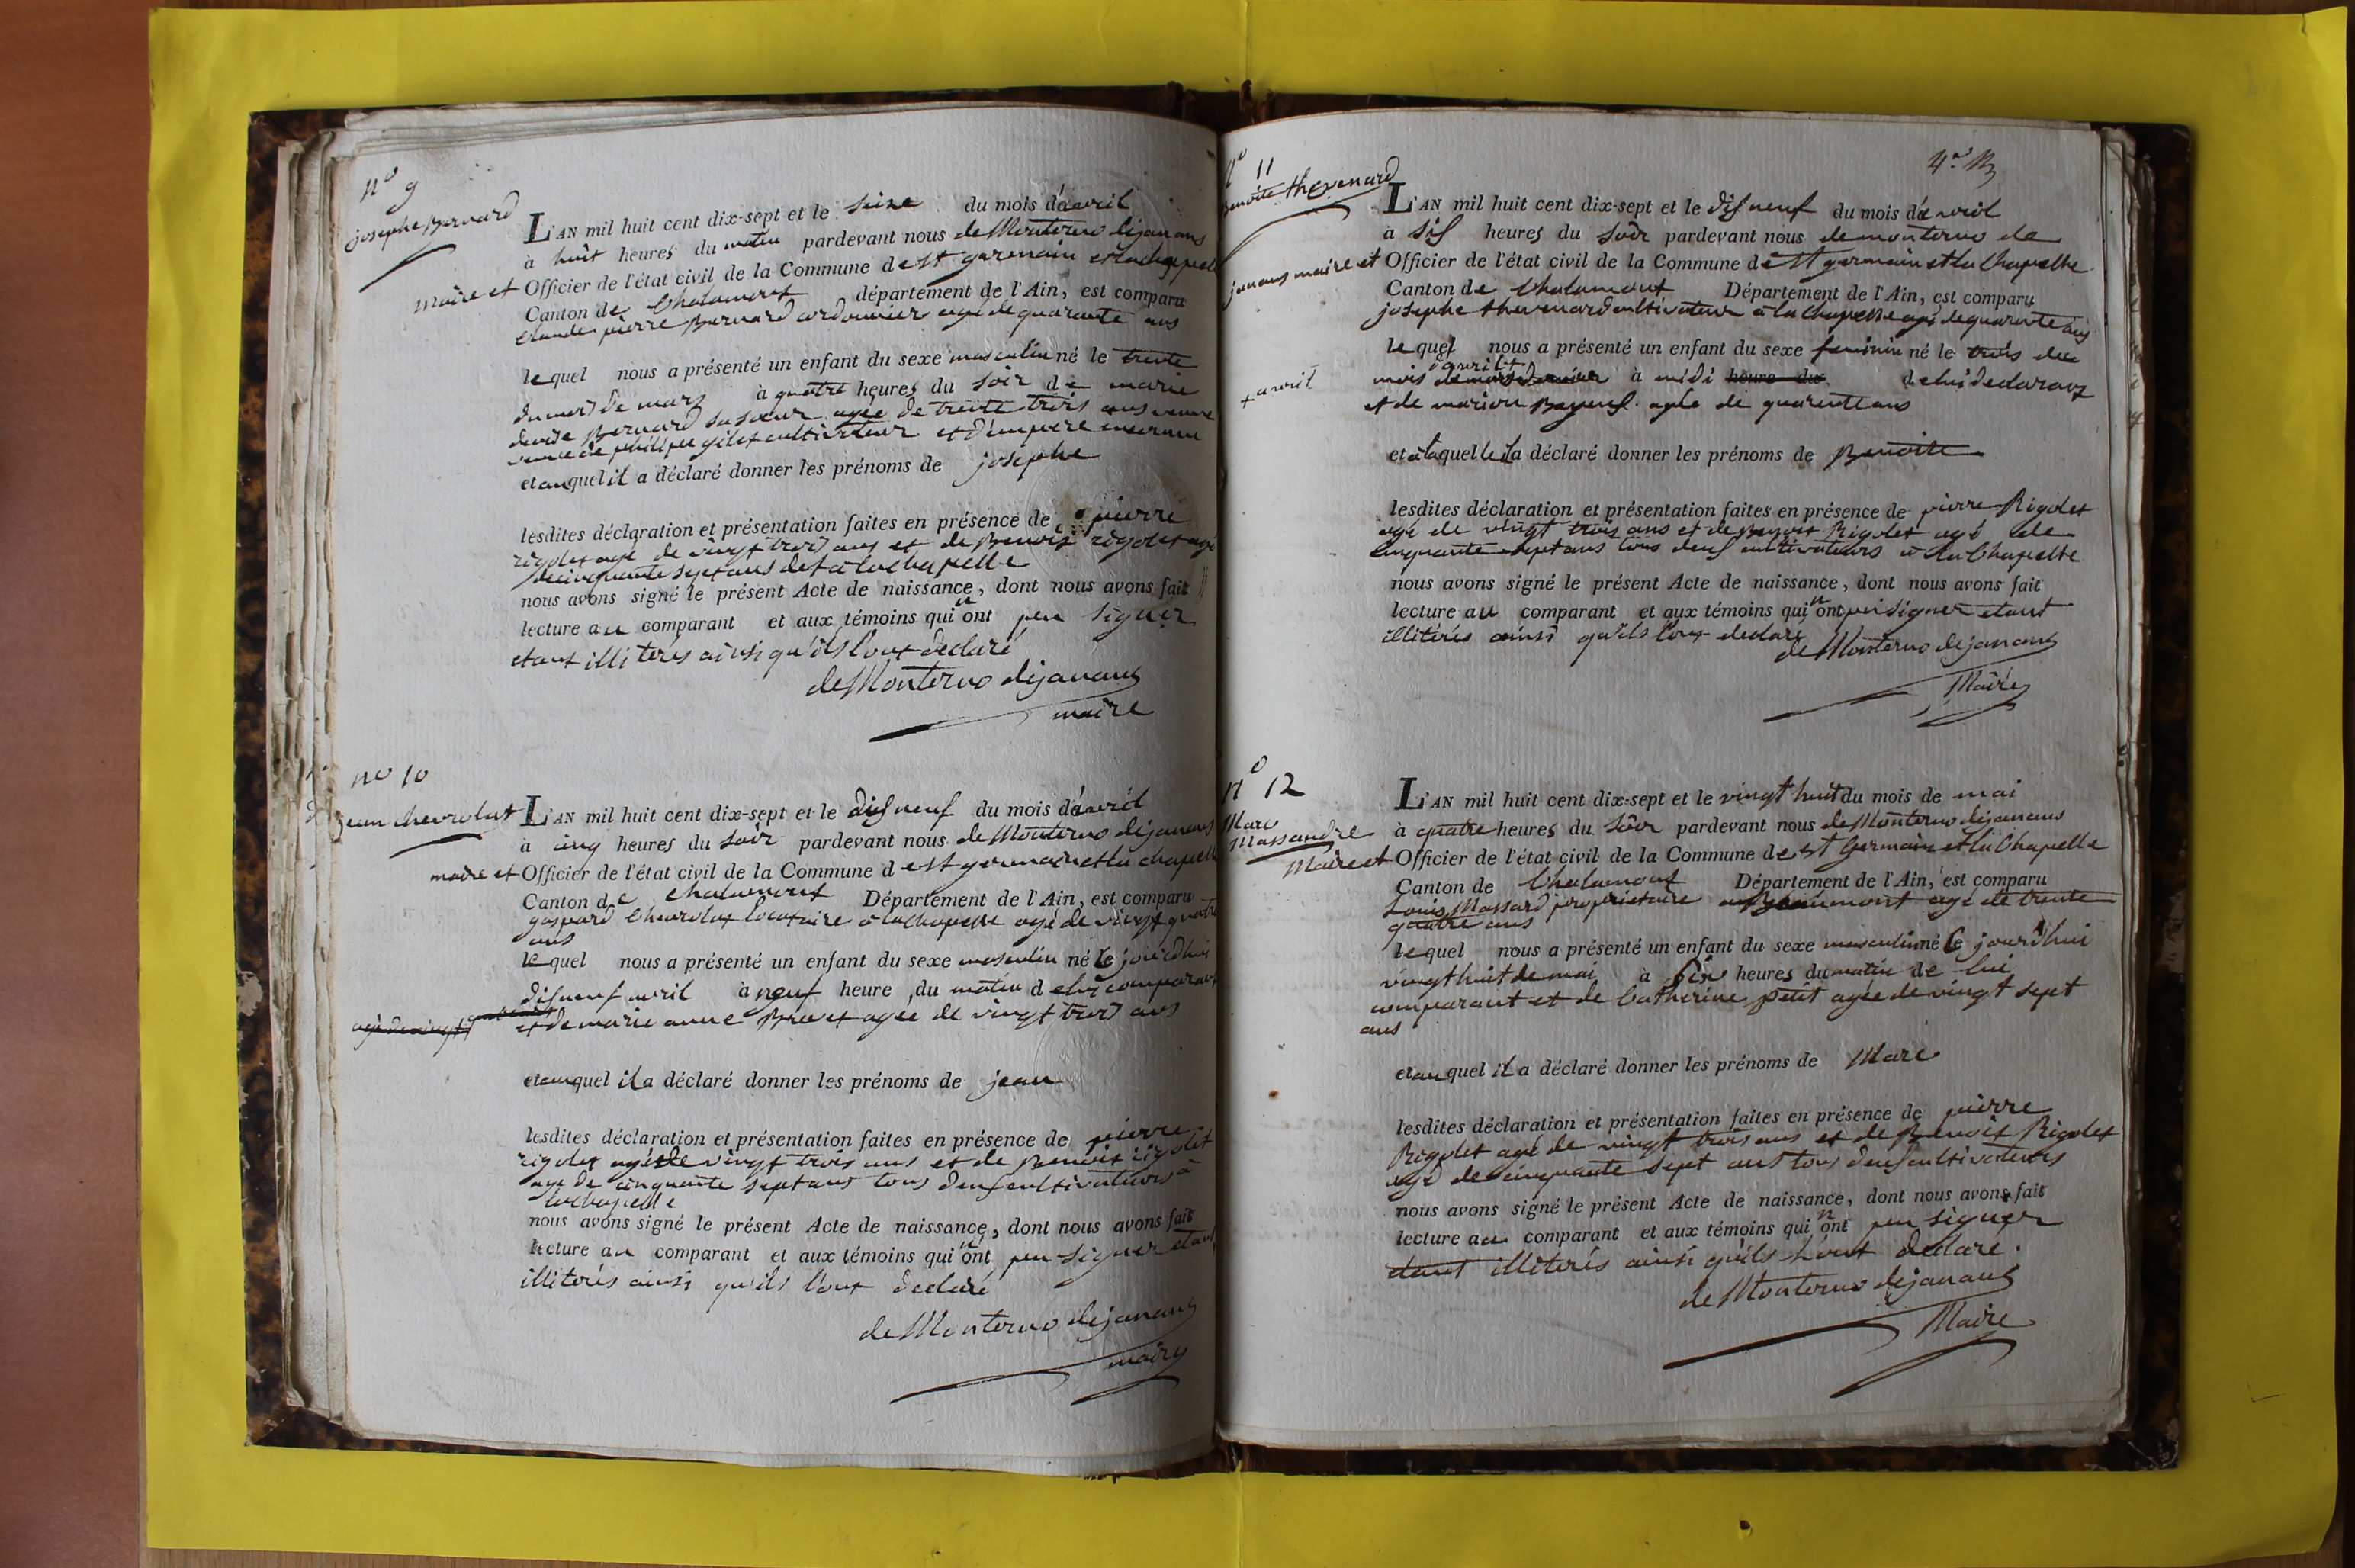 n° 9
josephe Bernard
L'AN mil huit cent dix-sept et le seize du mois d'avril
à huit heures du matin pardevant nous de Monterno dejanans
maire et Officier de l'état civil de la Commune de st germain et lachapelle
Canton de Chalamont département de l'Ain, est comparu
Claude pierre Bernard cordonnier agé de quarante ans
lequel nous a présenté un enfant du sexe masculin né le trente
du mois de mars à quatre heures du soir de marie
Bernard sa soeur agée de trente trois ans veuve
philippe gilet cultivateur et d'un pere inconnu
et auquel il a déclaré donner les prénoms de josephe
lesdites déclaration et présentation faites en présence de pierre
rigolet agé de vingt trois ans et de Benoit rigolet agé
de cinquante sept ans de la lachapelle
nous avons signé le présent Acte de naissance, dont nous avons fait
lecture au comparant et aux témoins qui n'ont peu signer
etant illiteres ainsi qu'ils l'ont declaré
de Monterno dejanans
maire
n° 10
jean chevrolat
L'AN mil huit cent dix-sept et le disneuf du mois d'avril
à cinq heures du soir pardevant nous de Monterno dejanans
maire et Officier de l'état civil de la Commune de st germain et la chapelle
Canton de Chalamont Département de l'Ain, est comparu
gaspard Chevrolat locataire à lachapelle agé de vingt quatre
ans
lequel nous a présenté un enfant du sexe masculin né le jourd'hui
disneuf avril à neuf heure du matin de lui comparant
et de marie anne Brevet agée de vingt trois ans
et auquel il a déclaré donner les prénoms de jean
lesdites déclaration et présentation faites en présence de pierre
rigolet agé de vingt trois ans et de Benoit rigolet
agé de cinquante sept ans tous deuf cultivateurs à
lachapelle
nous avons signé le présent Acte de naissance, dont nous avons fait
lecture au comparant et aux témoins qui n'ont peu signer etant
illiterés ainsi qu'ils l'ont declaré
de Monterno dejanans
maire
N° 11
Benoite thevenard
L'AN mil huit cent dix-sept et le disneuf du mois d'avril
à sis heures du soir pardevant nous de monterno de
janans maire et Officier de l'état civil de la Commune de st germain et la Chapelle
Canton de Chalamont Département de l'Ain, est comparu
josephe thevenard cultivateur à la Chapelle agé de quarante ans
lequel nous a présenté un enfant du sexe feminin né le trois du
+ avril
mois d'avril + à midi heure du de lui declarant
et de marion agée de quarante ans
et à laquelle il a déclaré donner les prénoms de Benoite
lesdites déclaration et présentation faites en présence de pierre Rigolet
agé de vingt trois ans et de Benoit Rigolet agé de
cinquante sept ans tous deuf cultivateurs à la Chapelle
nous avons signé le présent Acte de naissance, dont nous avons fait
lecture au comparant et aux témoins qui n'ont peu signer etant
illiterés ainsi qu'ils l'ont declaré
de Monterno dejanans
Maire
N° 12
Marc
Massandre
L'AN mil huit cent dix-sept et le vingt huit du mois de mai
à quatre heures du soir pardevant nous de Monterno dejanans
Maire et Officier de l'état civil de la Commune de st Germain et la Chapelle
Canton de Chalamont Département de l'Ain, est comparu
Louis Massard propriétaire a Beaumont agé de trente
quatre ans
lequel nous a présenté un enfant du sexe masculin né le jourd'hui
vingt huit de mai à six heures du matin de lui
comparant et de Catherine petit agée de vingt sept
ans
et auquel il a déclaré donner les prénoms de Marc
lesdites déclaration et présentation faites en présence de pierre
Rigolet agé de vingt trois ans et de Benoit Rigolet
agé de cinquante sept ans tous deuf cultivateurs
nous avons signé le présent Acte de naissance, dont nous avons fait
lecture au comparant et aux témoins qui n'ont peu signer
etant illiterés ainsi qu'ils l'ont declaré.
de Monterno dejanans
Maire